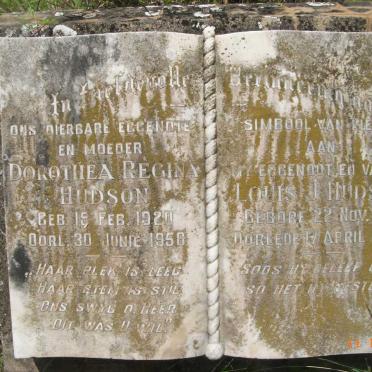 In Liefdevolle
ONS DIERBARE EGGENOTE
EN MOEDER
DOROTHEA REGINA
HUDSON
GEB. 15 FEB. 1920
OORL. 30 JUNIE 1958
"HAAR PLEK IS LEEG
HAAR STEM IS STIL
ONS SWYG O HEER
DIT WAS U WIL"
Herinnering
SIMBOOL VAN
AAN
MY EGGENOOT EN
LOUIS J HUDS
GEBORE 22 NOV.
OORLEDE 17 APRIL
SOOS HY GELEEF
SO HET HY